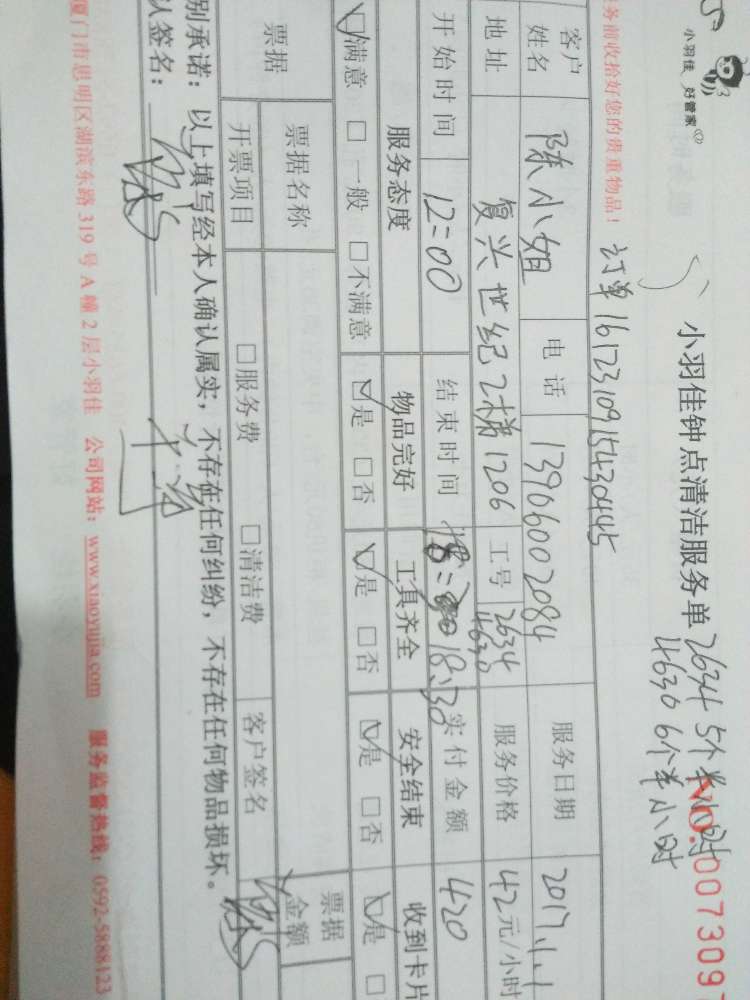 小羽佳 好管家
小羽佳钟点清洁服务单
2634 5个半小时
4630 6个半小时
NO.0073097
务前收拾好您的贵重物品!
订单1612310915430445
客户姓名 陈小姐 电话 13906002084 服务日期 2017.1.1
地址 复兴世纪2梯1206 工号 2634 4630 服务价格 42元/小时
开始时间 12:00 结束时间 18:30 实付金额 420
服务态度 物品完好 工具齐全 安全结束 收到卡片
☑满意 □一般 □不满意 ☑是 □否 ☑是 □否 ☑是 □否 ☑是 □
票据 票据名称 票据金额
开票项目 □服务费 □清洁费 客户签名
别承诺:以上填写经本人确认属实,不存在任何纠纷,不存在任何物品损坏。
认签名:
厦门市思明区湖滨东路 319 号 A 幢 2 层小羽佳 公司网站:www.xiaoyujia.com 服务监督热线:0592-5888123